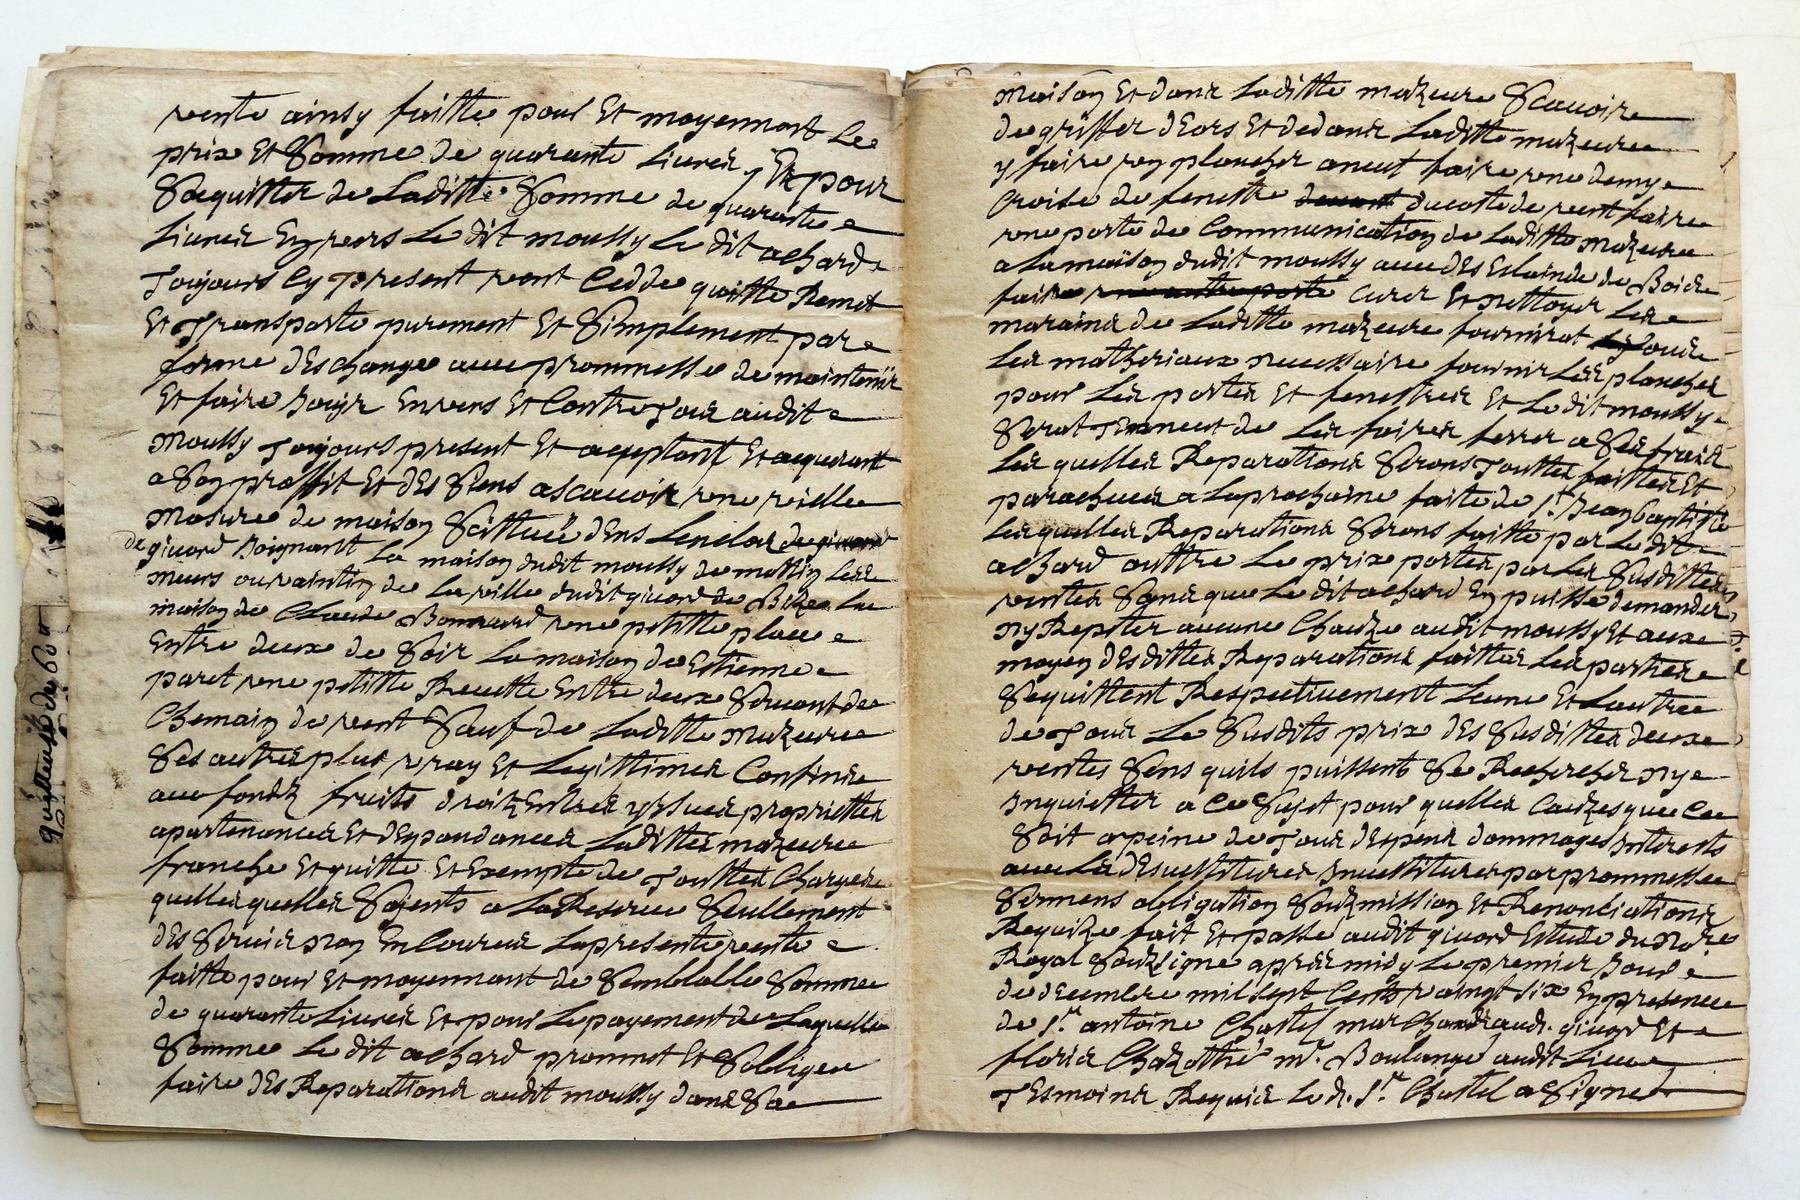 vente ainsy faitte pour Et moyennant Le
prix Et Somme de quarante Livres, Et pour
Sacquitter de Laditte Somme de quarante
Livres Envers Le dit moussy Le dit achard
Toujours Cy present vent Cedde quitte Remet
Et Transporte purement Et Simplement par
forme dEschange avec prommesse de maintenir
Et faire Jouyr Envers Et Contre Tous audit
Moussy Toujours present Et acceptant Et acquerant
a Son proffit Et dEs Siens ascavoir une vielle
Masure de maison Scittuée dEns Lenclos
de givord Joignant La maison dudit moussy de mattin Les
meurs ou vaintin de La ville dudit givord de Bize La
maison de Claude Bonnard une petitte place
Entre deux de Soir La maison de Estienne
paret une petitte Ruette Entre deux Servant de
Chemain de vent Sauf de Laditte Mazeure
Ses autres plus vray Et Legittimes Confins
avec fondz fruits droitz Entrés yssues propriettes
apartenances Et dEpandances Laditte mazeure
franche Et quitte Et Exempte de Touttes Charges
quelles quelles Soients a La Reserve Seullement
dEs Servis non Encourus La presente vente
faitte pour Et moyennant de Semblable Somme
de quarante Livres Et pour Le payement de Laquelle
Somme Le dit achard prommet Et Soblige
faire dEs Reparations audit moussy dans Sa
maison Et dans Laditte mazeure Scavoir
de griffer dEors Et dedans Laditte mazeure
y faire un plancher aneuf faire une demye
Croisé de fenestre du costé de vent faire
une porte de Communication de Laditte Mazeure
a La maison dudit moussy avec dEs de Bois
faire Curer Et nettoyer Les
marains de Laditte mazeure fournirat
Les matheriaux necessaire fournir Les planches
pour Les portes Et fenestres Et Le dit moussy
Serat Tenneut de Les faires ferrer a Ses frais
Les quelles Reparations Serons Touttes faittes Et
parachevés a La prochaine faite de St Jean baptiste
Les quelles Reparations Serons faitte par Le dit
achard outtre Le prix portés par Les Susdittes
ventes Sans que Le dit achard En puisse demander
Ny Repeter aucune Chauze audit moussy Et aux
moyen dEsdittes Reparations faittes Les parties
Sequittent Respectivement Lune Et Lautre
de Tous Le Susdits prix dEs Susdittes deux
ventes Sens quils puissents Se Rechercher Ny
Inquietter a Ce Sujet pour quelles Cauzes que Ce
Soit a peine de Tous dEpens dommages Interests
avec Les dEsvestitures Investitures par prommesse
Sermens obligation Soubzmission Et Renonciations
Requize fait Et passé audit givord Estude du Nore
Royal Soubzsigné apres midy Le premier Jour
de decembre mil sept Cents vaingt six En presence
de Sr. antoine Chastel marchand aud. givord Et
floris Chazottié mr. Boulangé audit Lieu
Tesmoins Requis Le d. Sr. Chastel a Signé